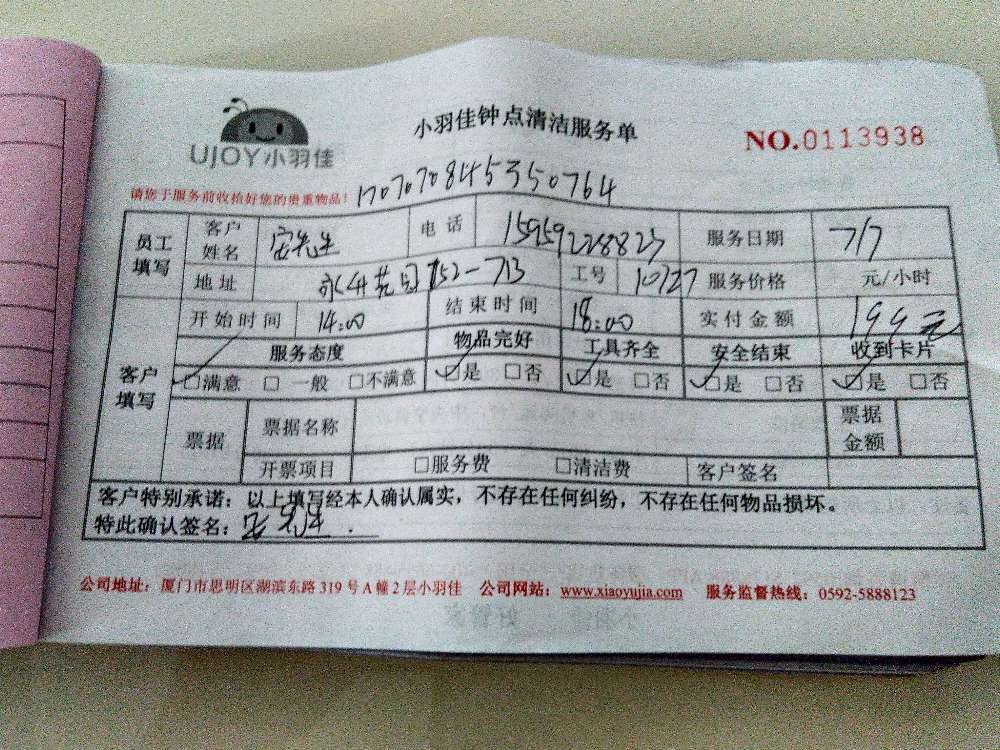 小羽佳钟点清洁服务单
NO.0113938
UJOY小羽佳
请您于服务前收拾好您的贵重物品! 1707070845350764
员工填写 客户姓名 先生 电话 服务日期 7/7
地址 152-713 工号 10127 服务价格 元/小时
客户填写 开始时间 14:00 结束时间 18:00 实付金额 199元
服务态度 物品完好 工具齐全 安全结束 收到卡片
□满意 □一般 □不满意 □是 □否 □是 □否 □是 □否 □是 □否
票据 票据名称 票据金额
开票项目 □服务费 □清洁费 客户签名
客户特别承诺:以上填写经本人确认属实,不存在任何纠纷,不存在任何物品损坏。
特此确认签名:
公司地址:厦门市思明区湖滨东路319号A幢2层小羽佳 公司网站:www.xiaoyujia.com 服务监督热线:0592-5888123